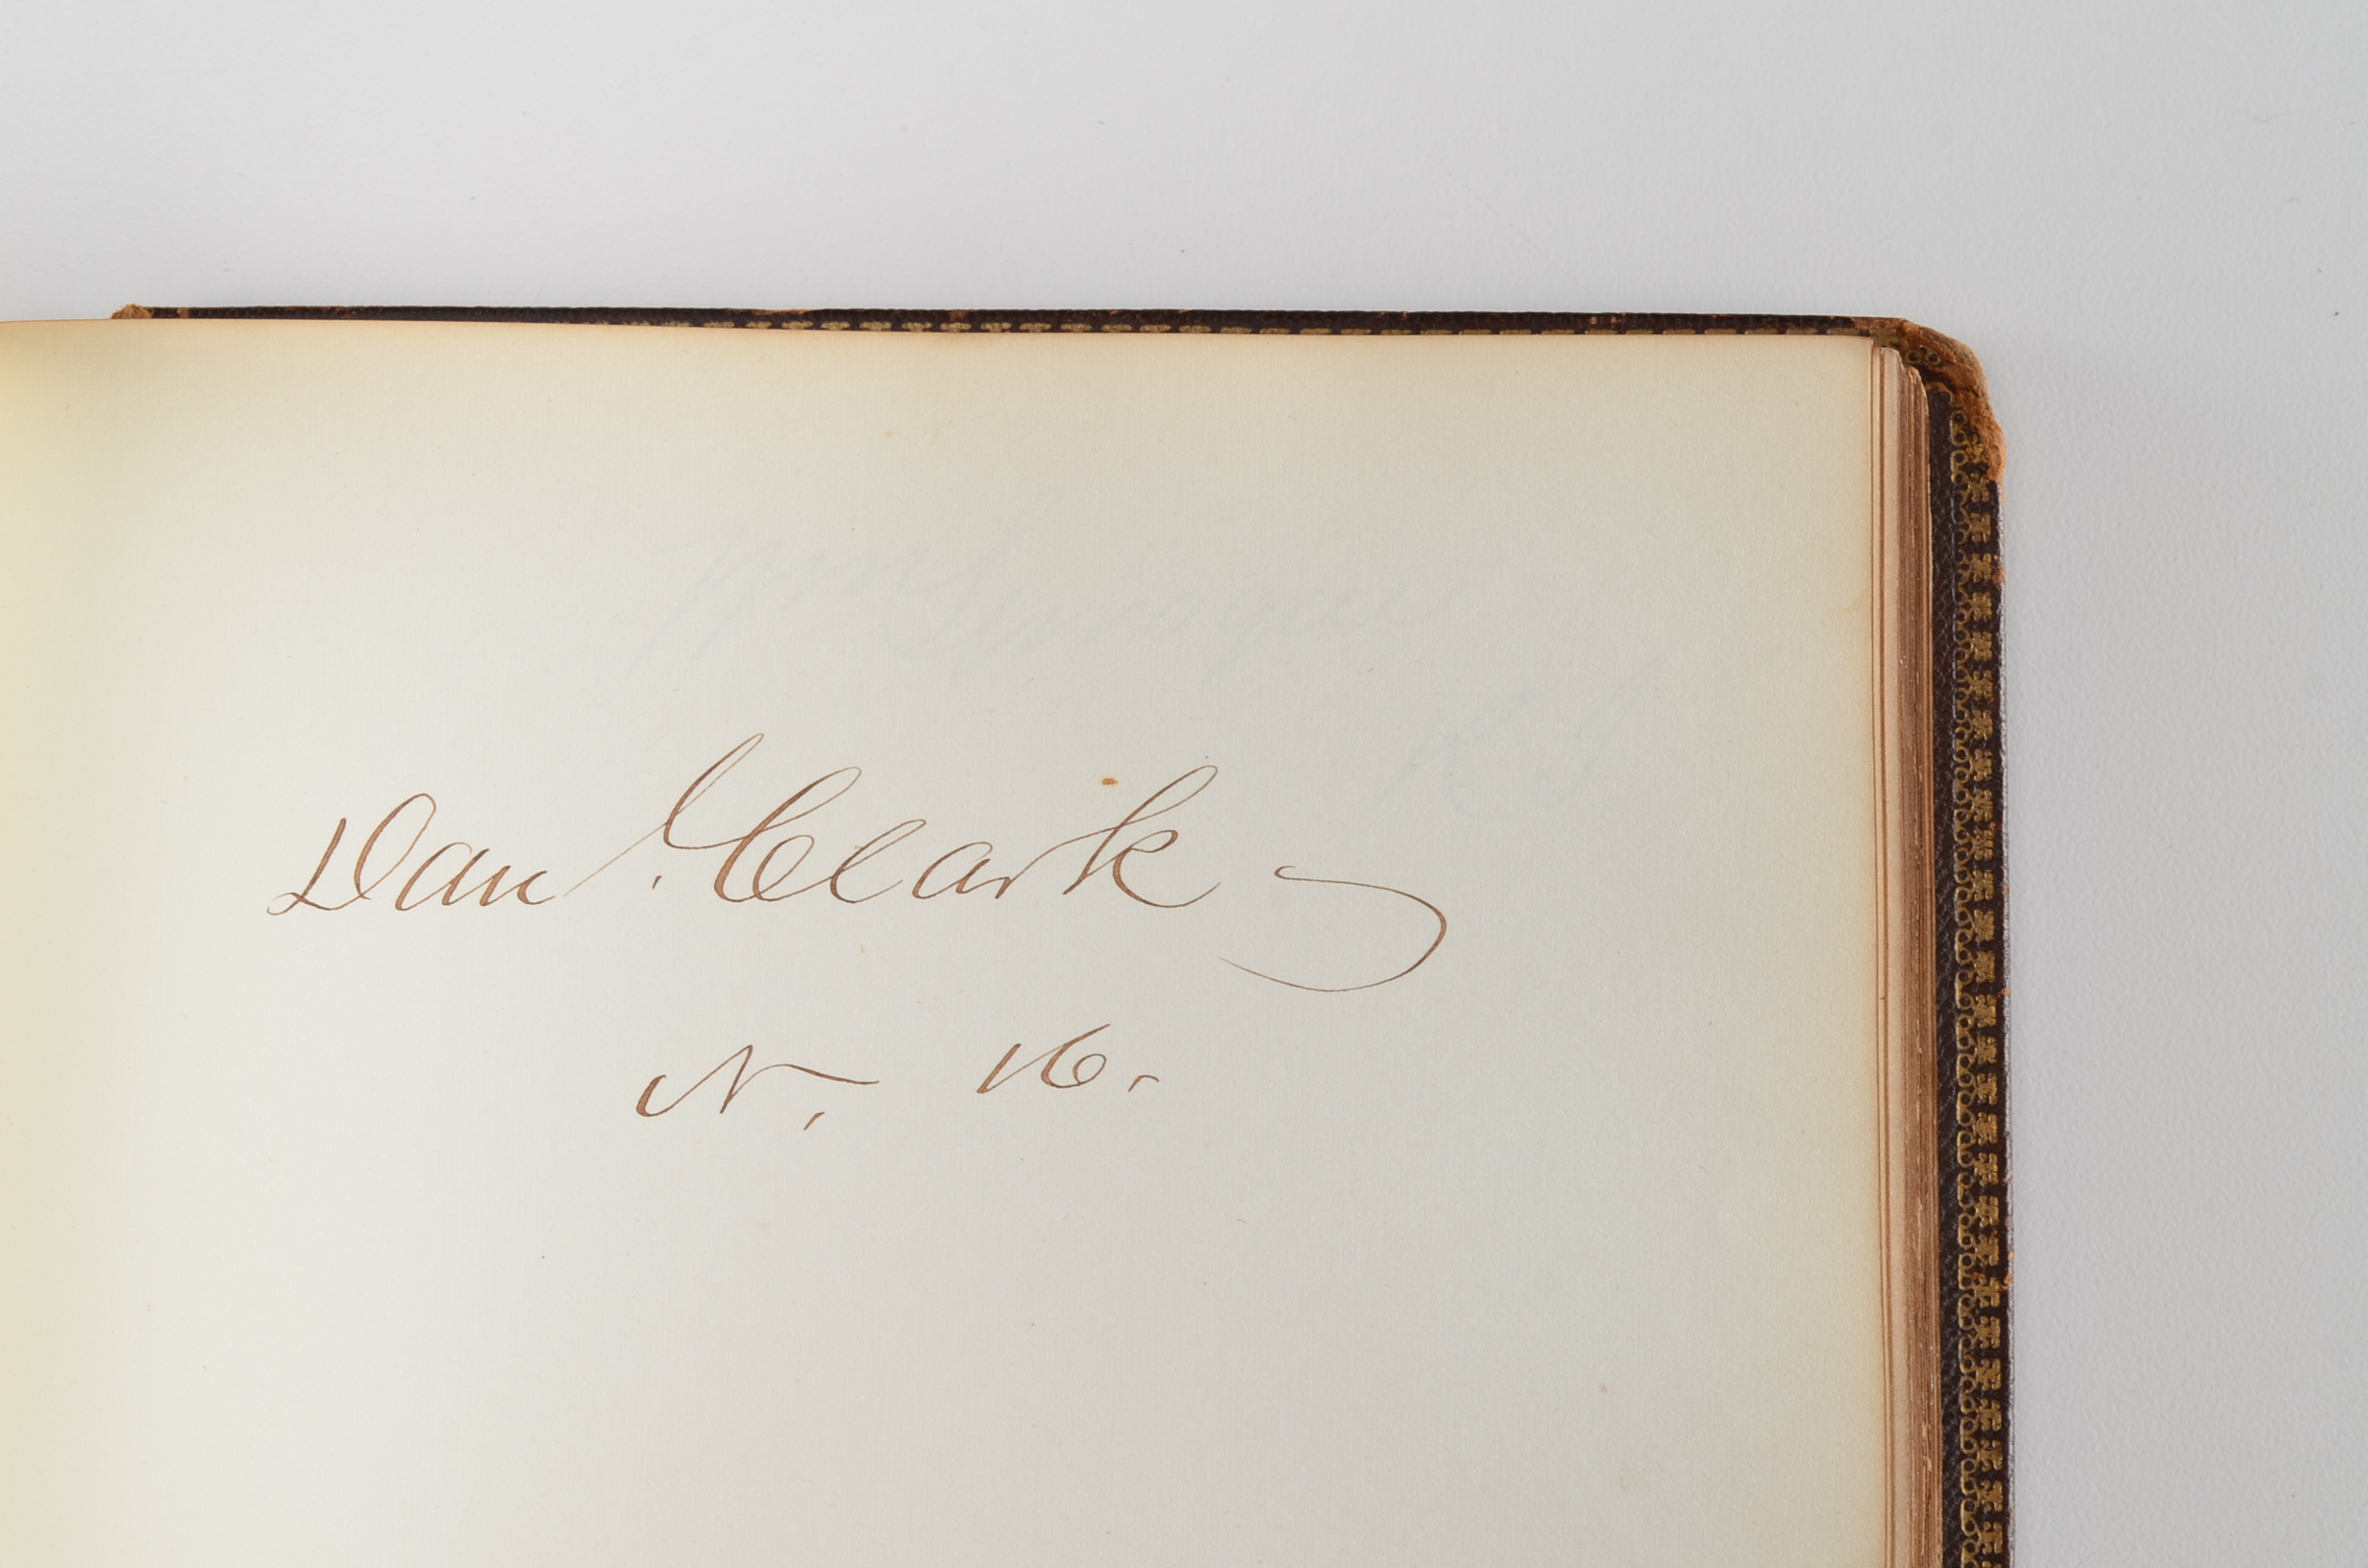 Danl. Clark
N. H.